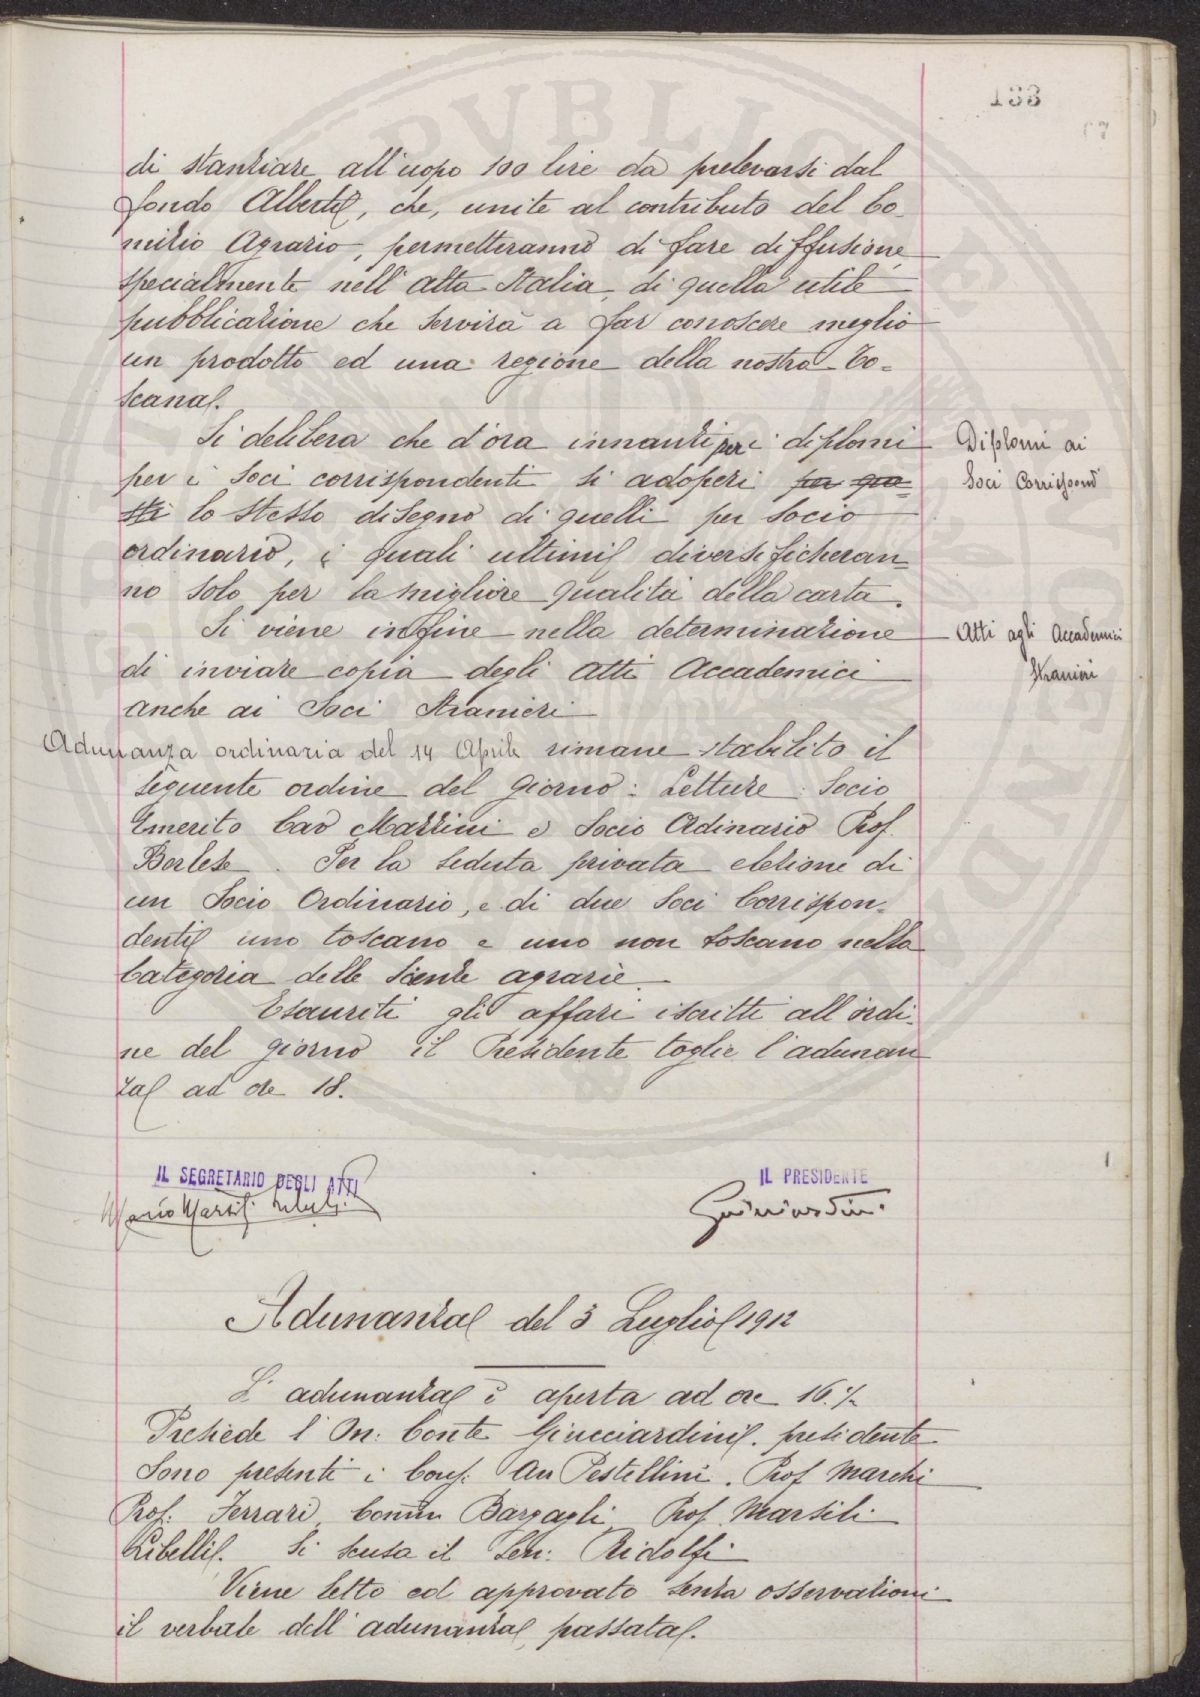 133
67
di stanziare all'uopo 100 lire da prelevarsi dal
fondo Alberti, che, unite al contributo del Co-
mizio Agrario, permetteranno di fare diffusione
specialmente nell'alta Italia, di quella utile
pubblicazione che servirà a far conoscere meglio
un prodotto ed una regione della nostra To=
scana.
Si delibera che d'ora innanzi per i diplomi
Diplomi ai
per i Soci corrispondenti si adoperi per que-
Soci Corrispond
sti lo stesso disegno di quelli per Socio
ordinario, i quali ultimi diversificheran=
no solo per la migliore qualità della carta.
Si viene infine nella determinazione
Atti agli Accademici
di inviare copia degli Atti Accademici
Stranieri
anche ai Soci Stranieri
Adunanza ordinaria del 14 Aprile rimane stabilito il
seguente ordine del giorno: Letture: Socio
Emerito Cav Mazzini e Socio Ordinario Prof.
Berlese. Per la seduta privata elezione di
un Socio Ordinario, e di due Soci Corrispon-
denti uno toscano e uno non toscano nella
Categoria delle Scienze agrarie.
Esauriti gli affari iscritti all'ordi-
ne del giorno il Presidente toglie l'adunan
za ad ore 18.
IL SEGRETARIO DEGLI ATTI
IL PRESIDENTE
Mario Marsili Libelli
Guicciardini
Adunanza del 3 Luglio 1912
L'adunanza è aperta ad ore 16 ½
Presiede l'On: Conte Guicciardini. presidente
Sono presenti i Cons: Avv Pestellini. Prof Marchi
Prof: Ferrari, Comm Bargagli, Prof. Marsili
Libelli. Si scusa il Sen: Ridolfi
Viene letto ed approvato senza osservazioni
il verbale dell'adunanza passata.